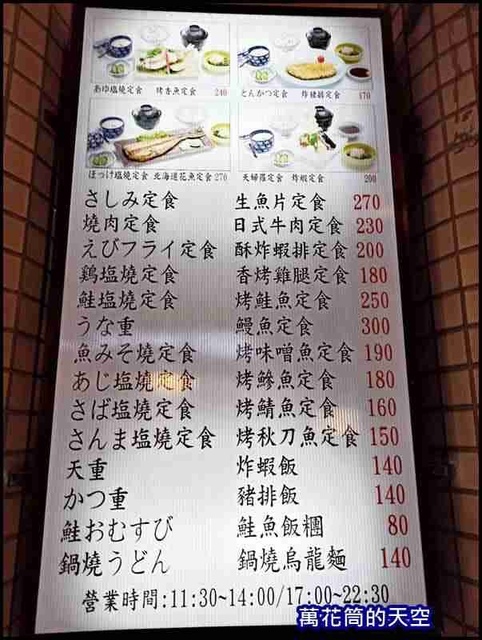 あゆ塩燒定食 烤香魚定食 240
とんかつ定食 炸豬排定食 170
ほっけ塩燒定食 北海道花魚定食 270
天婦羅定食 炸蝦定食 200
さしみ定食 生魚片定食 270
燒肉定食 日式牛肉定食 230
えびフライ定食 酥炸蝦排定食 200
鶏塩燒定食 香烤雞腿定食 180
鮭塩燒定食 烤鮭魚定食 250
うな重 鰻魚定食 300
魚みそ燒定食 烤味噌魚定食 190
あじ塩燒定食 烤鰺魚定食 180
さば塩燒定食 烤鯖魚定食 160
さんま塩燒定食 烤秋刀魚定食 150
天重 炸蝦飯 140
かつ重 豬排飯 140
鮭おむすび 鮭魚飯糰 80
鍋燒うどん 鍋燒烏龍麵 140
營業時間:11:30~14:00/17:00~22:30
萬花筒的天空